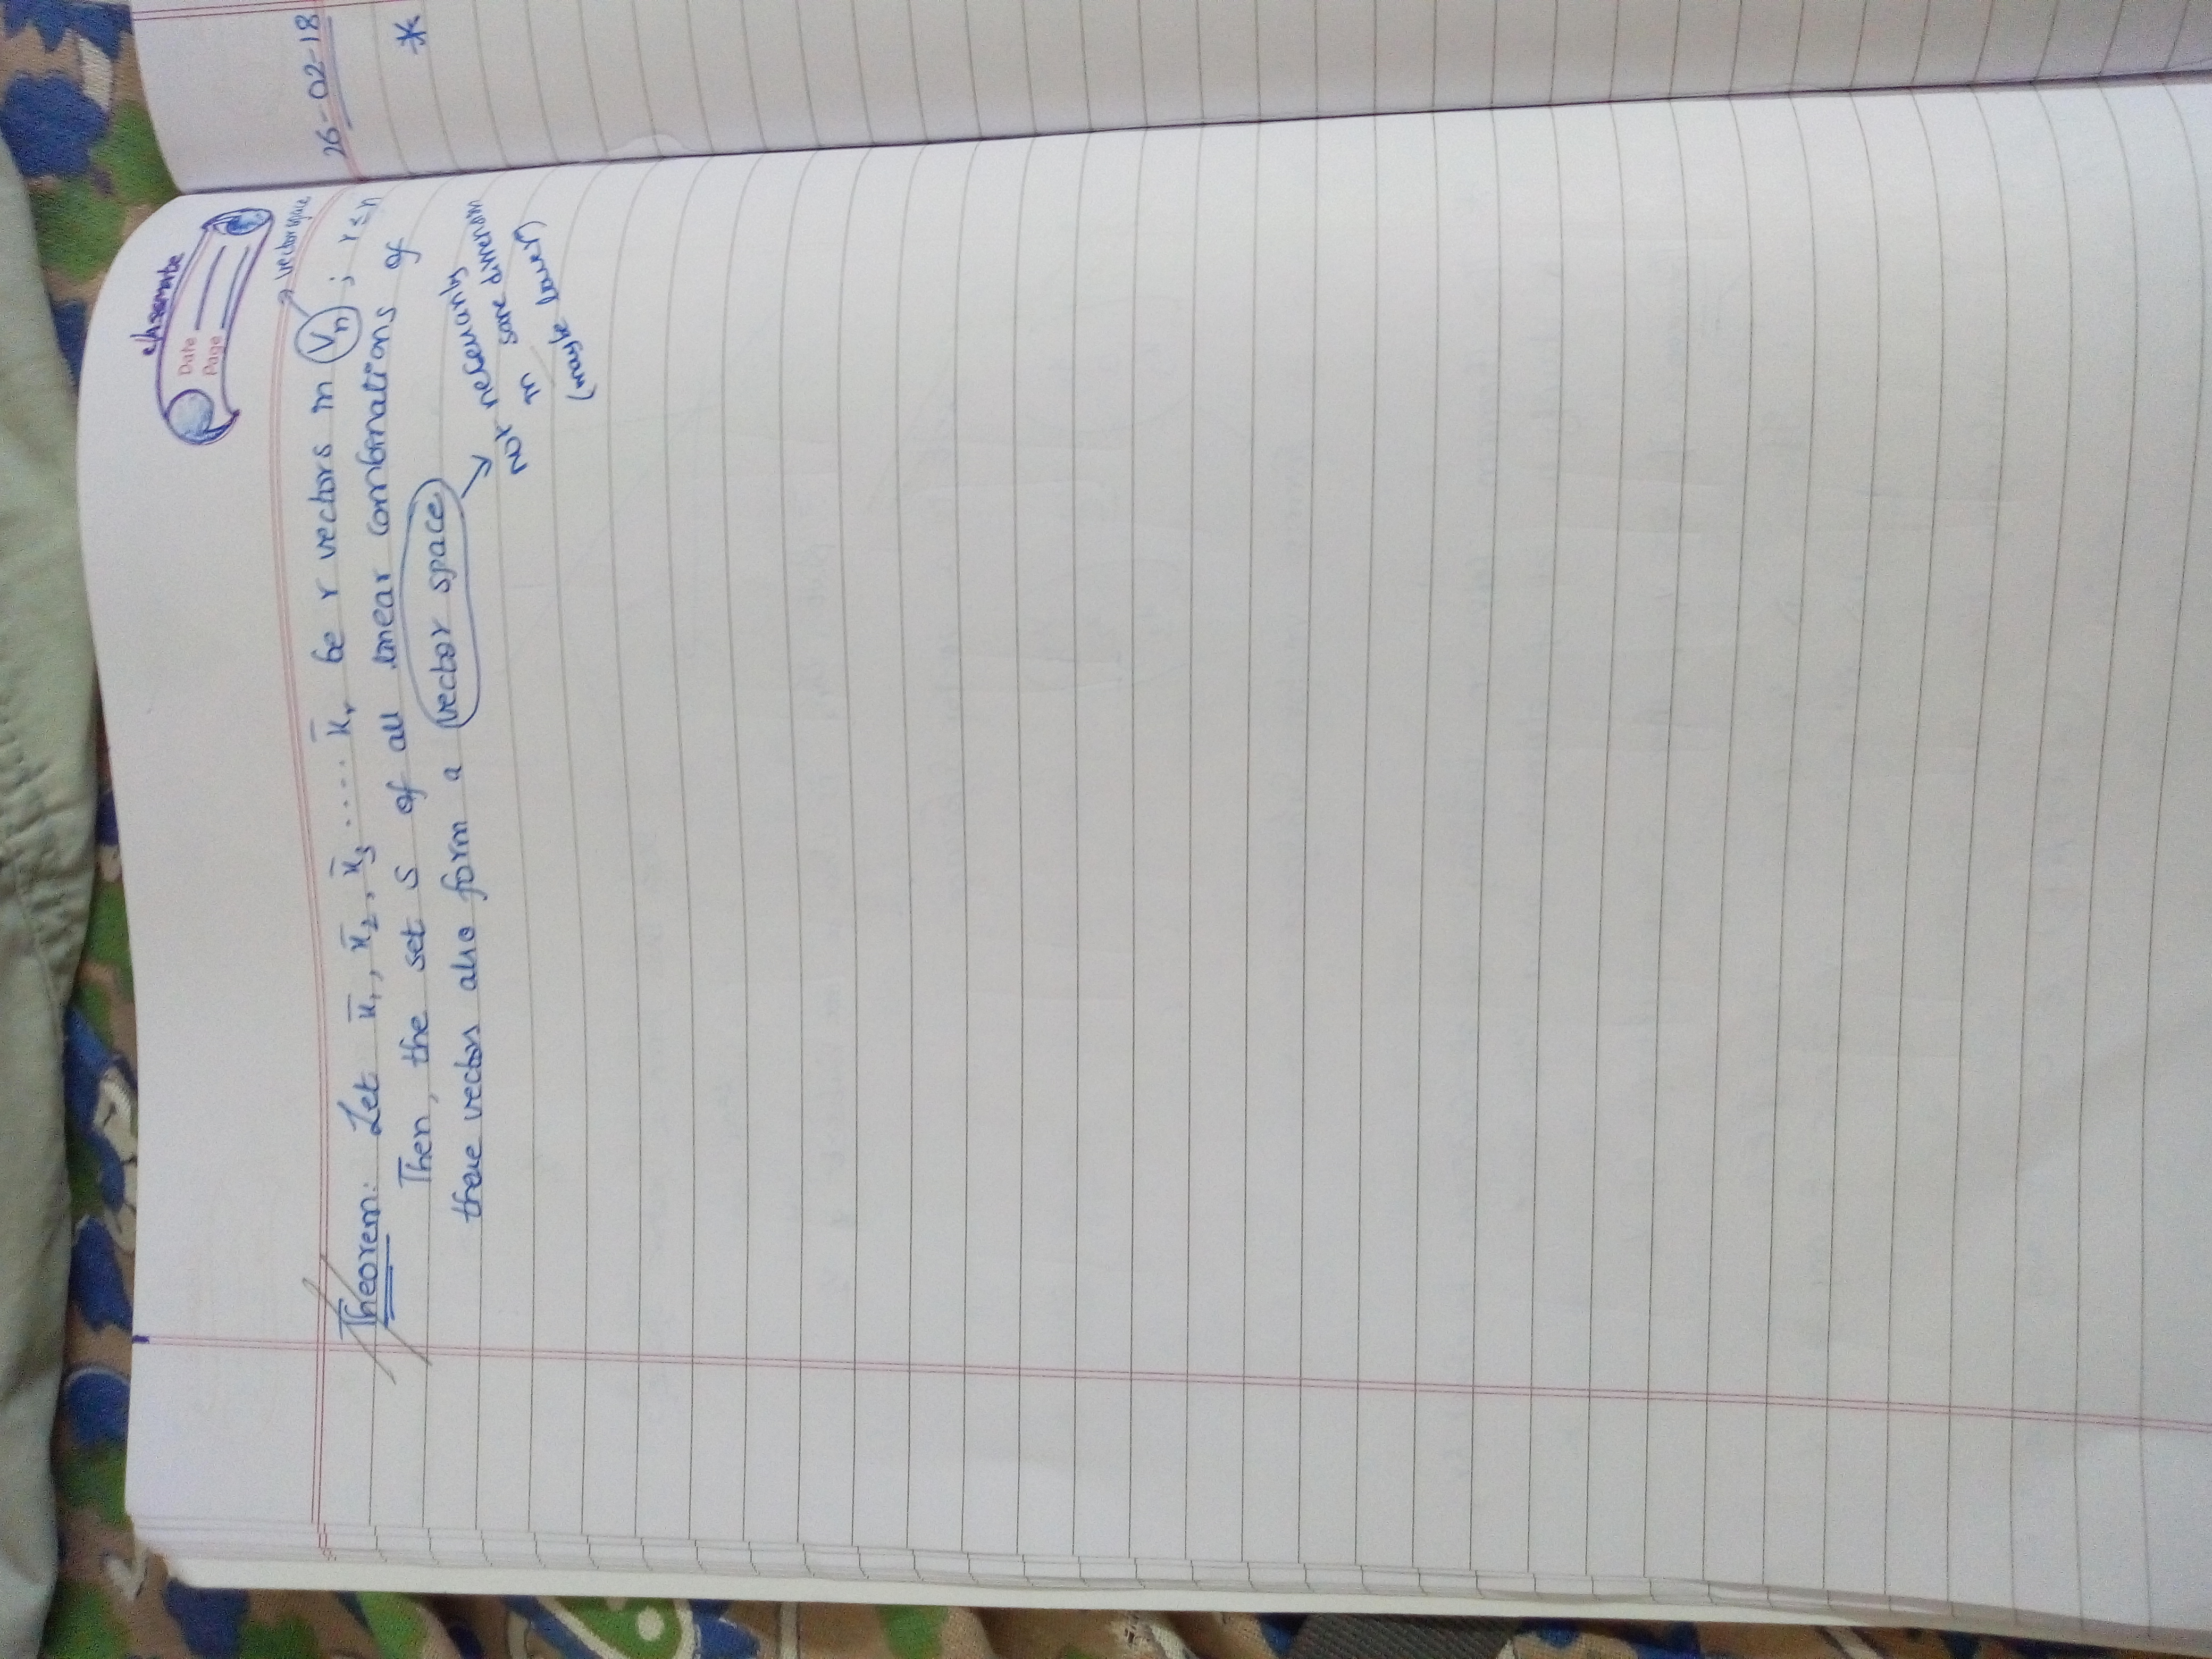 classmate
Date
Page
vector space
Theorem: Let x̄₁, x̄₂, x̄₃ ..... x̄ᵣ be r vectors in Vₙ ; r ≤ n
Then, the set S of all linear combinations of
these vectors also form a vector space
not necessarily
in same dimension
(maybe lower)
26-02-18
*